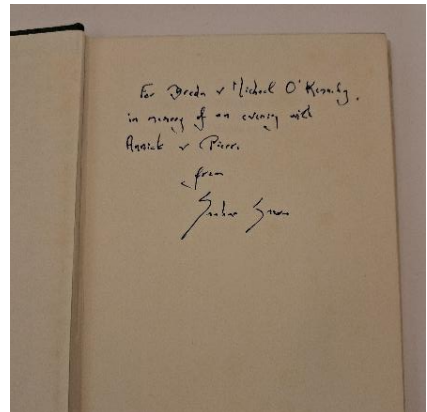 For Breda & Michael O'Kennedy,
in memory of an evening with
Annick & Pierre
from
Graham Greene